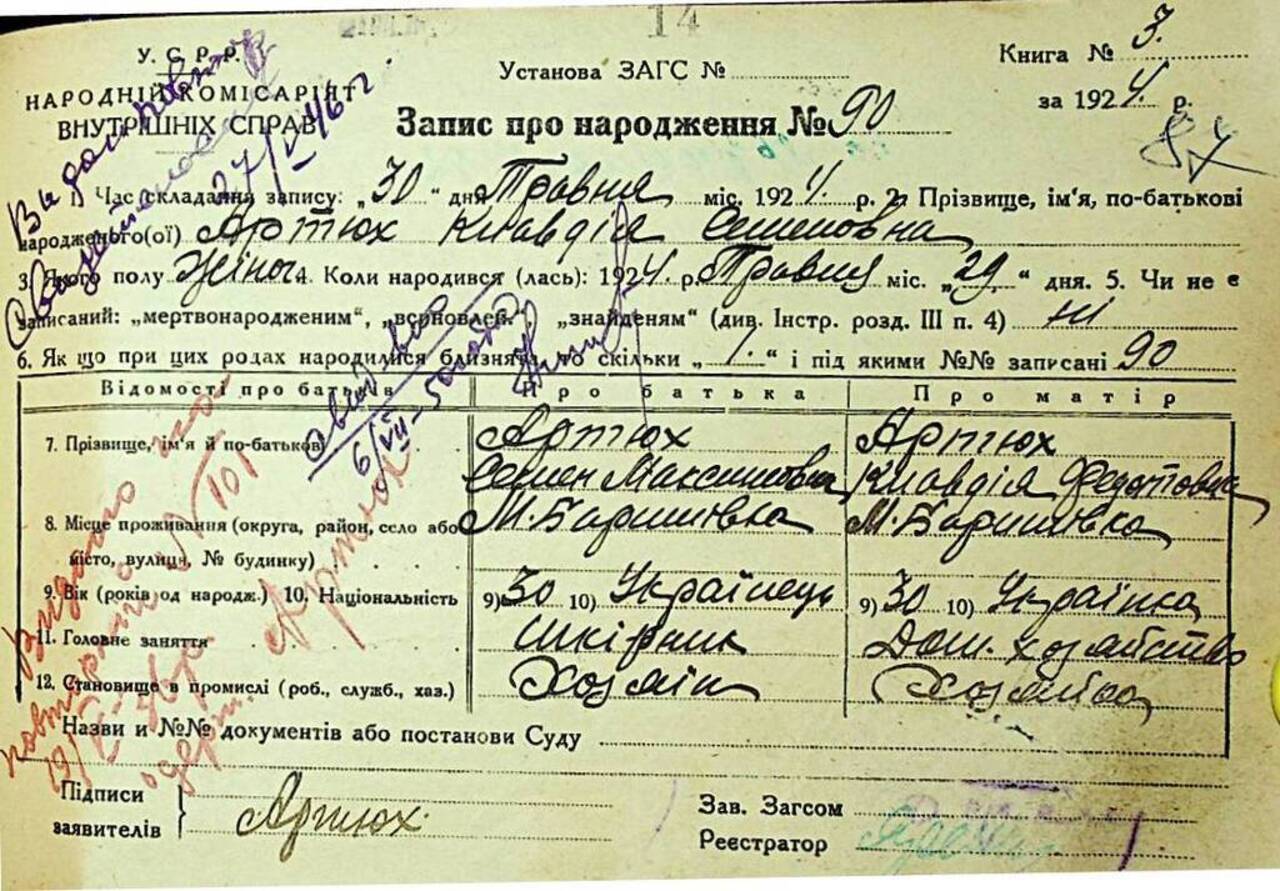 14
У. С. Р. Р.
НАРОДНІЙ КОМІСАРІЯТ
ВНУТРІШНІХ СПРАВ
Установа ЗАГС №
Книга № 3.
за 1924. р.
Запис про народження № 90
1. Час складання запису: „30“ дня Травня міс. 1924. р. 2. Прізвище, ім'я, по-батькові
народженого(ої) Артюх Клавдія Семеновна
3. Якого полу Жіноч 4. Коли народився (лась): 1924. р. Травня міс. „29“ дня. 5. Чи не є
записаний: „мертвонародженим“, „всрновлен.“ „знайденям“ (див. Інстр. розд. III п. 4) ні
6. Як що при цих родах народилися близнята, то скільки „1.“ і під якими №№ записані 90
Відомості про батьків Про батька Про матір
7. Прізвище, ім'я й по-батькові Артюх Артюх
Семен Максимович Клавдія Федотовна
8. Місце проживання (округа, район, село або М. Баришівка М. Баришівка
місто, вулиця, № будинку)
9. Вік (років од народж.) 10. Національність 9) 30 10) Українець 9) 30 10) Українка
11. Головне заняття Шкірник Дом. хозяйство
12. Становище в промислі (роб., служб., хаз.) Хозяін Хозяйка
Назви и №№ документів або постанови Суду
Підписи
заявителів
Артюх
Зав. Загсом
Реєстратор
Видано
повторно
Артюх
27/V 46 г.
6/VII-50